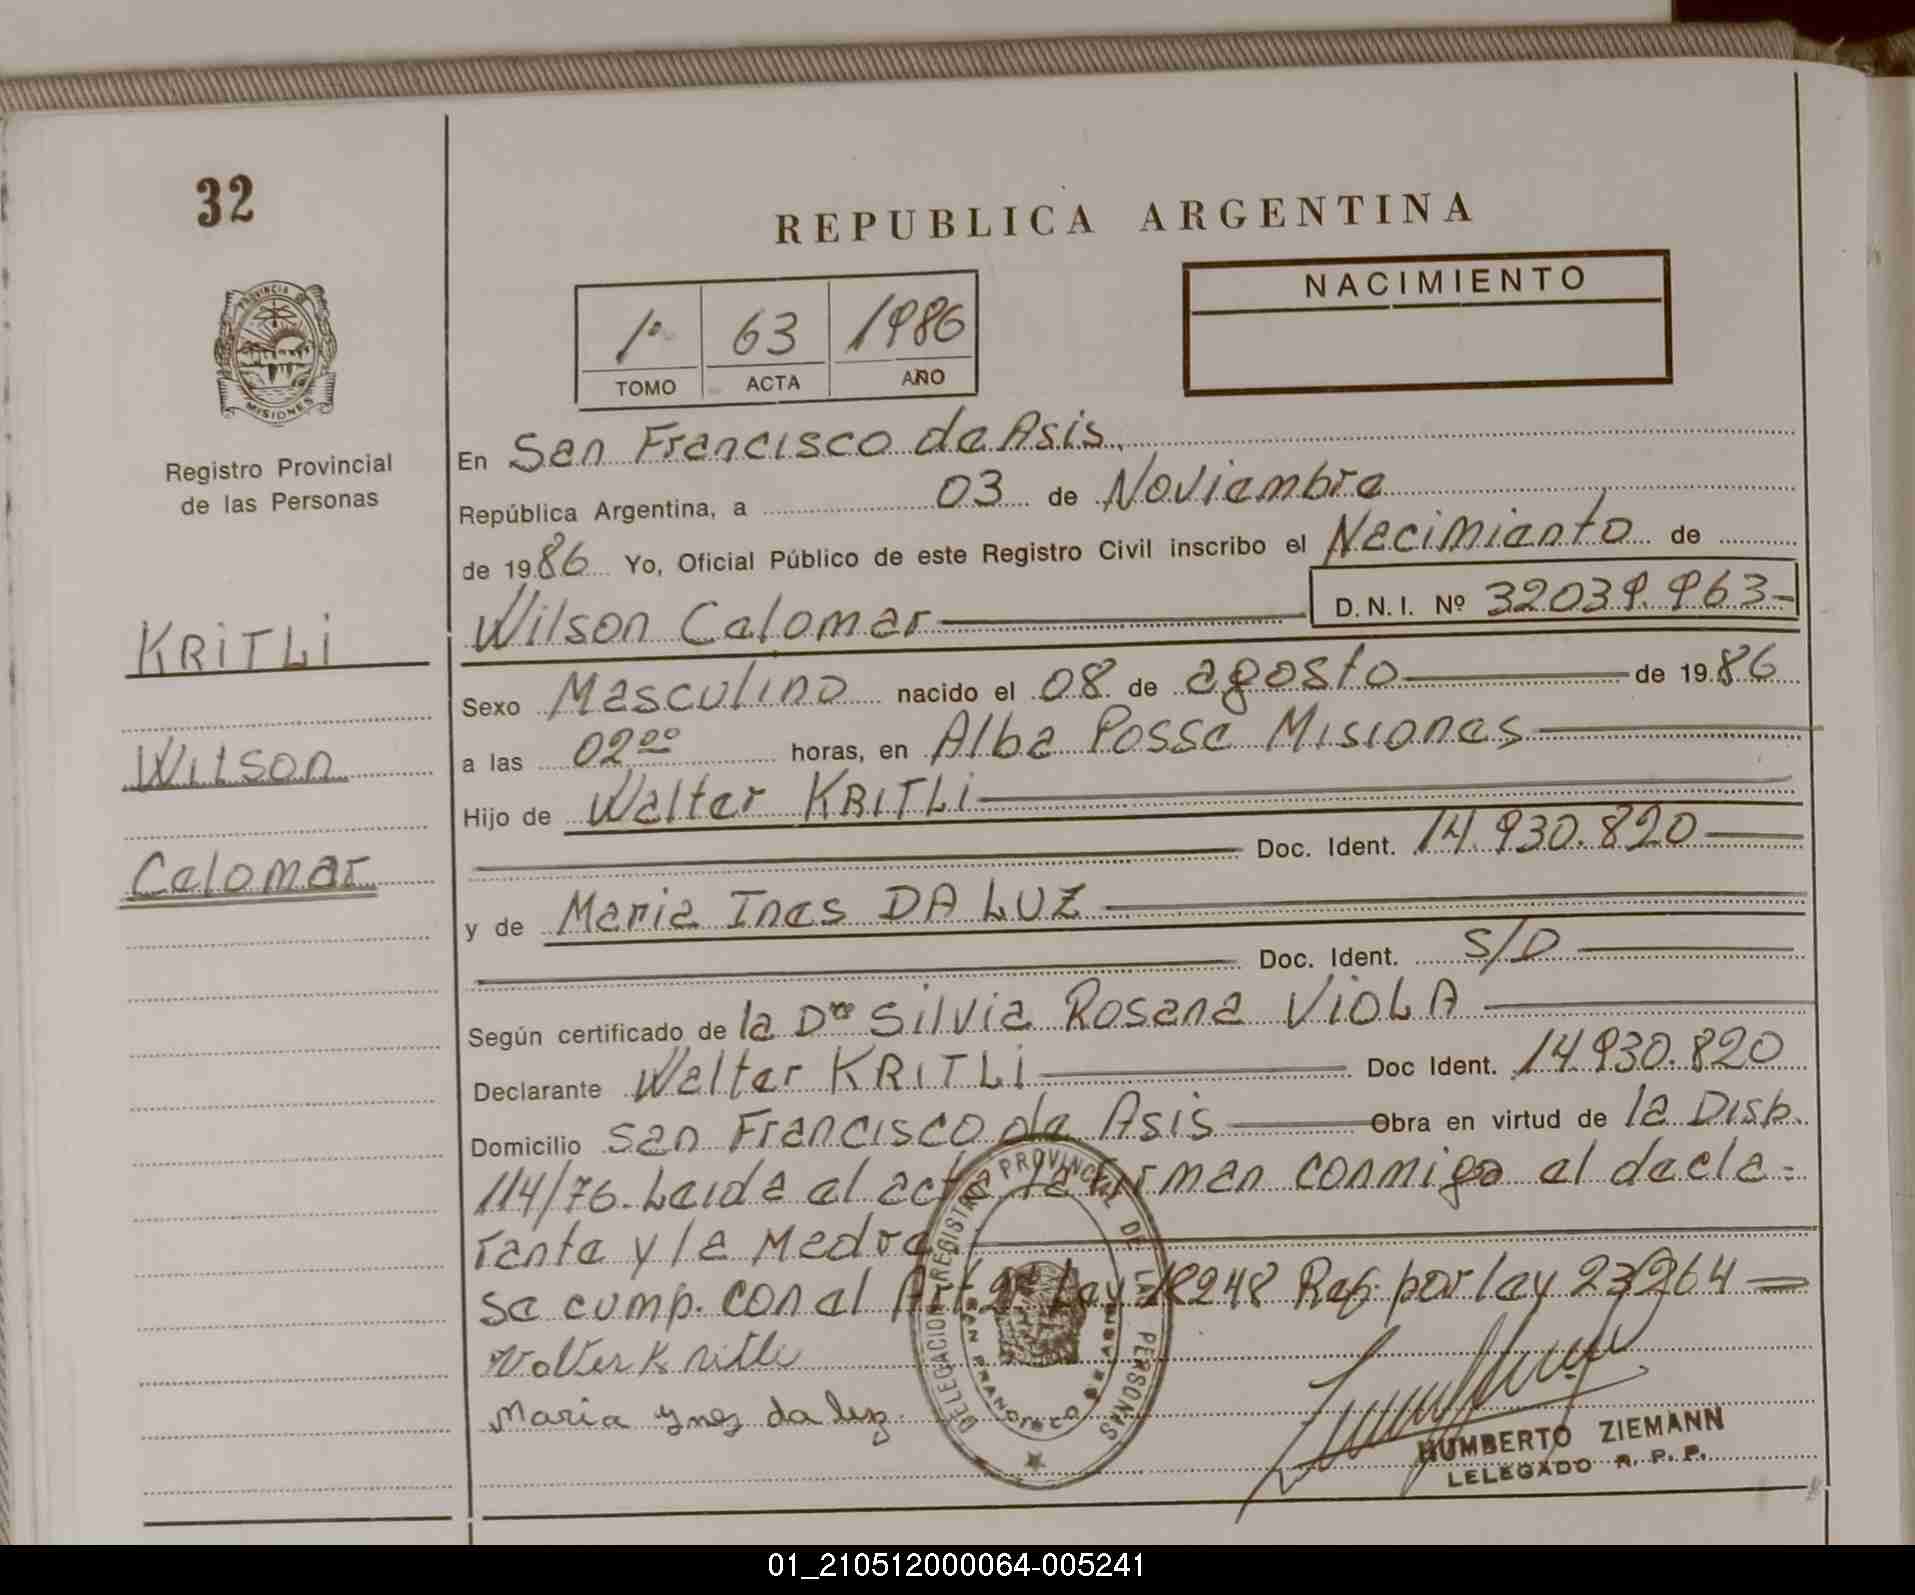 32
REPUBLICA ARGENTINA
NACIMIENTO
1º 63 1986
TOMO ACTA AÑO
PROVINCIA DE
MISIONES
Registro Provincial
de las Personas
KRITLI
Wilson
Calomar
En San Francisco de Asis,
República Argentina, a 03 de Noviembre
de 1986 Yo, Oficial Público de este Registro Civil inscribo el Nacimiento de
Wilson Calomar D.N.I. Nº 32039.963-
Sexo Masculino nacido el 08 de agosto de 1986
a las 02⁰⁰ horas, en Alba Posse Misiones
Hijo de Walter KRITLI
Doc. Ident. 14.930.820
y de Maria Ines DA LUZ
Doc. Ident. S/D
Según certificado de la Dra Silvia Rosana VIOLA
Declarante Walter KRITLI Doc Ident. 14.930.820
Domicilio San Francisco de Asis Obra en virtud de la Disp.
114/76. Leida el acta la Firman conmigo el decla=
rante y la Madre
se cump. con el Art. 2º Ley 18248 Ref. por ley 23264
Walter Kritli
Maria ynes da luz.
DELEGACION REGISTRO PROVINCIAL DE LAS PERSONAS
SAN FRANCISCO DE ASIS
HUMBERTO ZIEMANN
LELEGADO R. P. P.
01_210512000064-005241